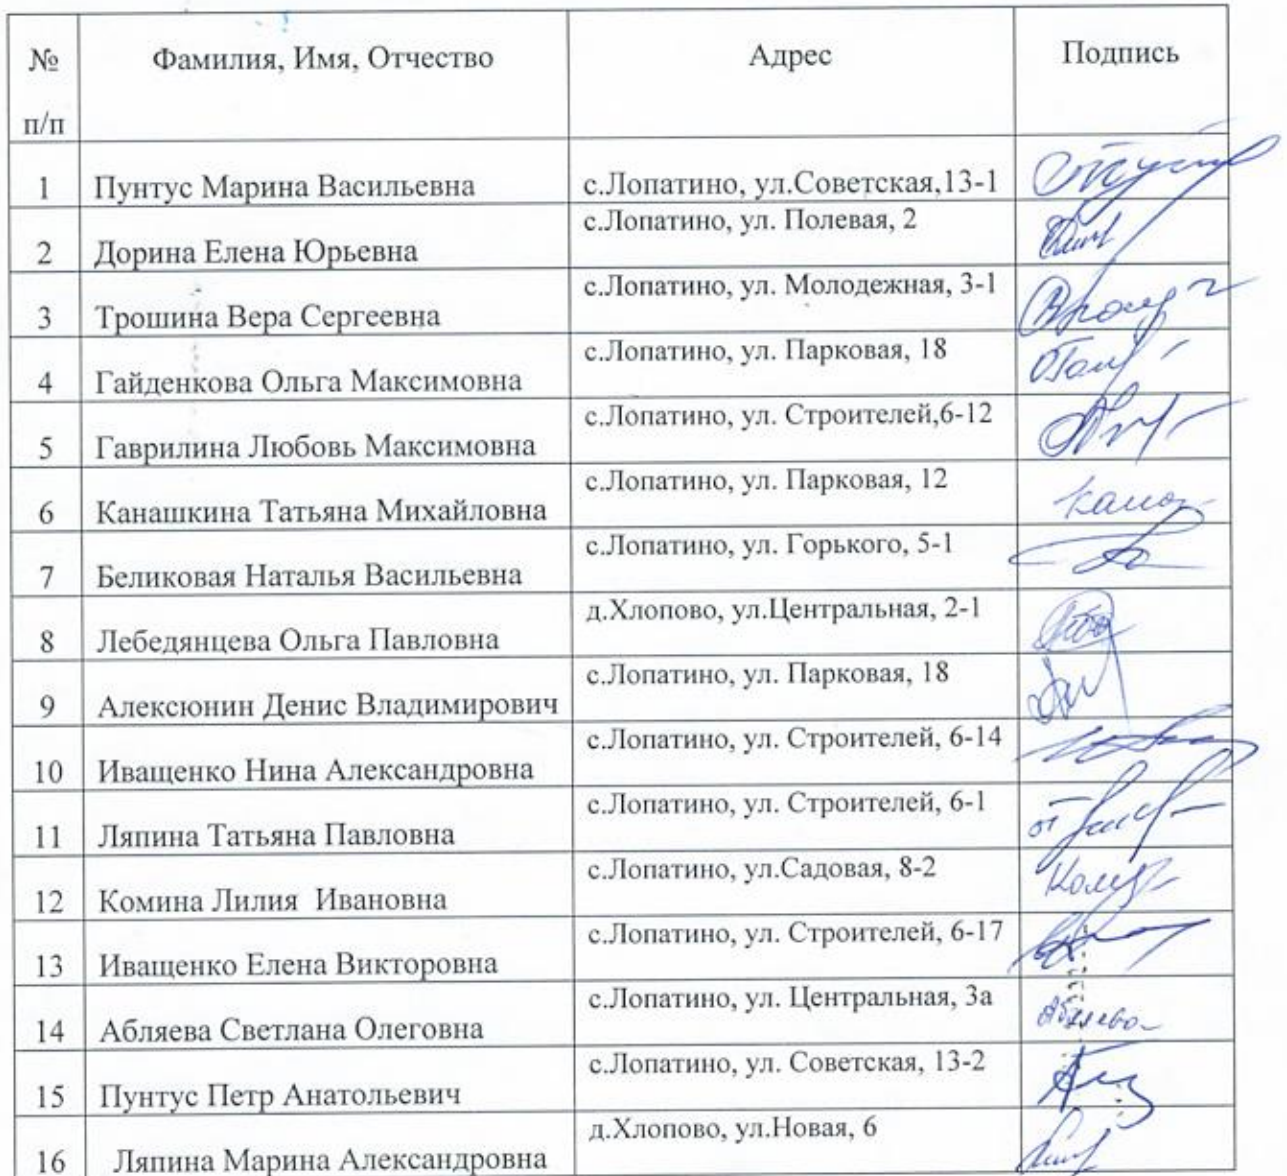 № п/п Фамилия, Имя, Отчество Адрес Подпись
1 Пунтус Марина Васильевна с.Лопатино, ул.Советская,13-1
2 Дорина Елена Юрьевна с.Лопатино, ул. Полевая, 2
3 Трошина Вера Сергеевна с.Лопатино, ул. Молодежная, 3-1
4 Гайденкова Ольга Максимовна с.Лопатино, ул. Парковая, 18
5 Гаврилина Любовь Максимовна с.Лопатино, ул. Строителей,6-12
6 Канашкина Татьяна Михайловна с.Лопатино, ул. Парковая, 12
7 Беликовая Наталья Васильевна с.Лопатино, ул. Горького, 5-1
8 Лебедянцева Ольга Павловна д.Хлопово, ул.Центральная, 2-1
9 Алексюнин Денис Владимирович с.Лопатино, ул. Парковая, 18
10 Иващенко Нина Александровна с.Лопатино, ул. Строителей, 6-14
11 Ляпина Татьяна Павловна с.Лопатино, ул. Строителей, 6-1
12 Комина Лилия Ивановна с.Лопатино, ул.Садовая, 8-2
13 Иващенко Елена Викторовна с.Лопатино, ул. Строителей, 6-17
14 Абляева Светлана Олеговна с.Лопатино, ул. Центральная, 3а
15 Пунтус Петр Анатольевич с.Лопатино, ул. Советская, 13-2
16 Ляпина Марина Александровна д.Хлопово, ул.Новая, 6